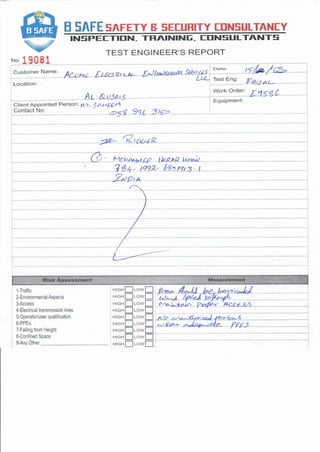 B SAFE B SAFE SAFETY & SECURITY CONSULTANCY
INSPECTION, TRAINING, CONSULTANTS
TEST ENGINEER'S REPORT
No: 19081
Customer Name: ACUME ELECTRICAL ENGINEERING SERVICES LLC
Date: 15/
Location: AL QUSAIS
Test Eng: FAIZAL
Work Order:
Client Appointed Person: Mr. SAMEEM
Equipment:
Contact No: 055 896 3150
RIGGER
① - MOHAMMED IKRAR
784-1992-
INDIA
Risk Assessment
Measurement
1-Traffic HIGH LOW Area should be barricaded
2-Environmental Aspects HIGH LOW Wind Speed
3-Access HIGH LOW Maintain Proper Access
4-Electrical transmission lines HIGH LOW
5-Operator/user qualification HIGH LOW No unauthorised persons
6-PPEs HIGH LOW wear adequate PPES
7-Falling from Height HIGH LOW
8-Confined Space HIGH LOW
9-Any Other HIGH LOW